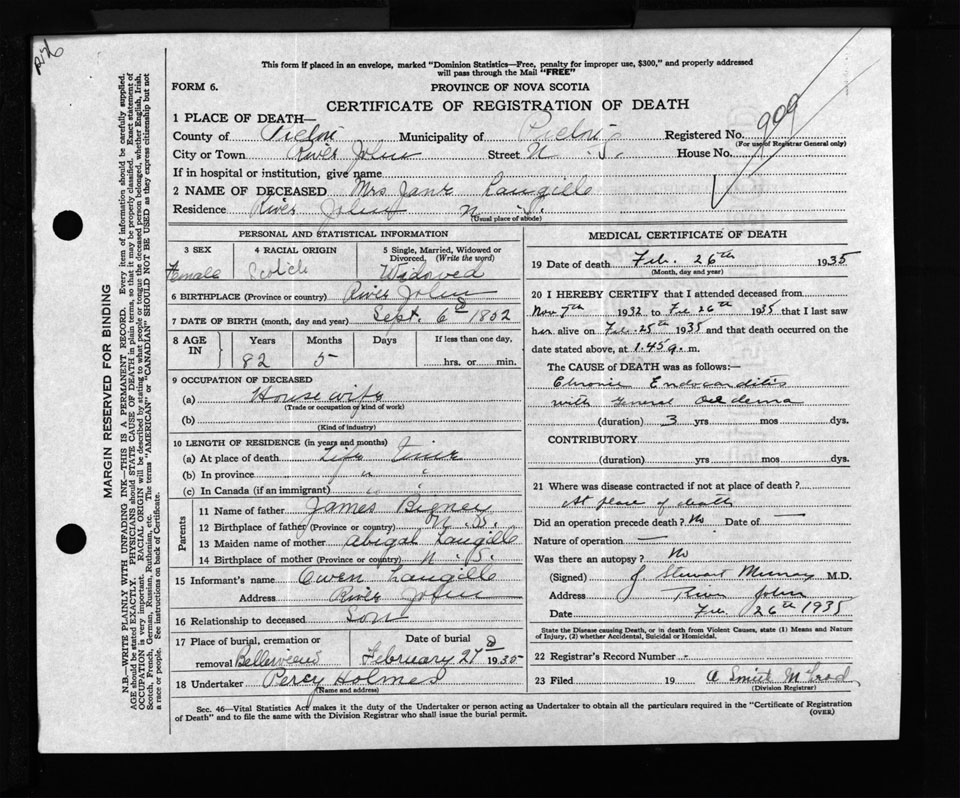 This form if placed in an envelope, marked "Dominion Statistics—Free, penalty for improper use, $300," and properly addressed
will pass through the Mail "FREE"
FORM 6.
PROVINCE OF NOVA SCOTIA
CERTIFICATE OF REGISTRATION OF DEATH
1 PLACE OF DEATH—
County of Pictou Municipality of Pictou Registered No. 909
(For use of Registrar General only)
City or Town River John Street N. S. House No.
If in hospital or institution, give name
2 NAME OF DECEASED Mrs Jane Langille
Residence River John N. S.
(Usual place of abode)
PERSONAL AND STATISTICAL INFORMATION
3 SEX Female
4 RACIAL ORIGIN Scotich
5 Single, Married, Widowed or
Divorced, (Write the word)
Widowed
6 BIRTHPLACE (Province or country) River John
7 DATE OF BIRTH (month, day and year) Sept. 6th 1852
8 AGE IN Years 82 Months 5 Days If less than one day,
hrs. or min.
9 OCCUPATION OF DECEASED
(a) House wife
(Trade or occupation or kind of work)
(b)
(Kind of industry)
10 LENGTH OF RESIDENCE (in years and months)
(a) At place of death Life Time
(b) In province " "
(c) In Canada (if an immigrant) " "
Parents
11 Name of father James Bigney
12 Birthplace of father (Province or country) N. S.
13 Maiden name of mother Abigal Langille
14 Birthplace of mother (Province or country) N. S.
15 Informant's name Owen Langille
Address River John
16 Relationship to deceased Son
17 Place of burial, cremation or
removal Bellevieew
Date of burial
February 27d 1935
18 Undertaker Percy Holmes
(Name and address)
MEDICAL CERTIFICATE OF DEATH
19 Date of death Feb. 26th 1935
(Month, day and year)
20 I HEREBY CERTIFY that I attended deceased from
Nov 7th 1932 to Feb 26th 1935 that I last saw
her alive on Feb. 25th 1935 and that death occurred on the
date stated above, at 1.45 a. m.
The CAUSE of DEATH was as follows:—
Chronic Endocarditis
with General Oedema
(duration) 3 yrs mos dys.
CONTRIBUTORY
(duration) yrs mos dys.
21 Where was disease contracted if not at place of death?
At place of death
Did an operation precede death? No Date of —
Nature of operation —
Was there an autopsy? No
(Signed) J Stewart Murray M.D.
Address River John
Date Feb. 26th 1935
State the Disease causing Death, or in death from Violent Causes, state (1) Means and Nature
of Injury, (2) whether Accidental, Suicidal or Homicidal.
22 Registrar's Record Number -
23 Filed 19
(Division Registrar)
Sec. 46—Vital Statistics Act makes it the duty of the Undertaker or person acting as Undertaker to obtain all the particulars required in the "Certificate of Registration
of Death" and to file the same with the Division Registrar who shall issue the burial permit.
(OVER)
MARGIN RESERVED FOR BINDING
N.B.—WRITE PLAINLY WITH UNFADING INK—THIS IS A PERMANENT RECORD. Every item of information should be carefully supplied.
AGE should be stated EXACTLY. PHYSICIANS should STATE CAUSE OF DEATH in plain terms, so that it may be properly classified. Exact statement of
OCCUPATION is very important. RACIAL ORIGIN will be described by stating to what people or tongue the deceased person belonged, whether English, Irish,
Scotch, French, German, Russian, Ruthenian, etc. The terms "AMERICAN" or "CANADIAN" SHOULD NOT BE USED as they express citizenship but not
a race or people. See instructions on back of Certificate.